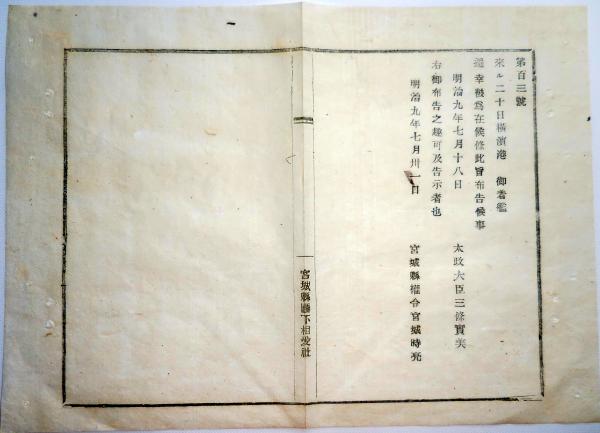 第百三號
來ル二十日橫濱港 御着艦
還幸被爲在候條此旨布告候事
明治九年七月十八日
太政大臣三條實美
右御布告之趣可及告示者也
明治九年七月卅一日
宮城縣權令宮城時亮
宮城縣廳下相愛社